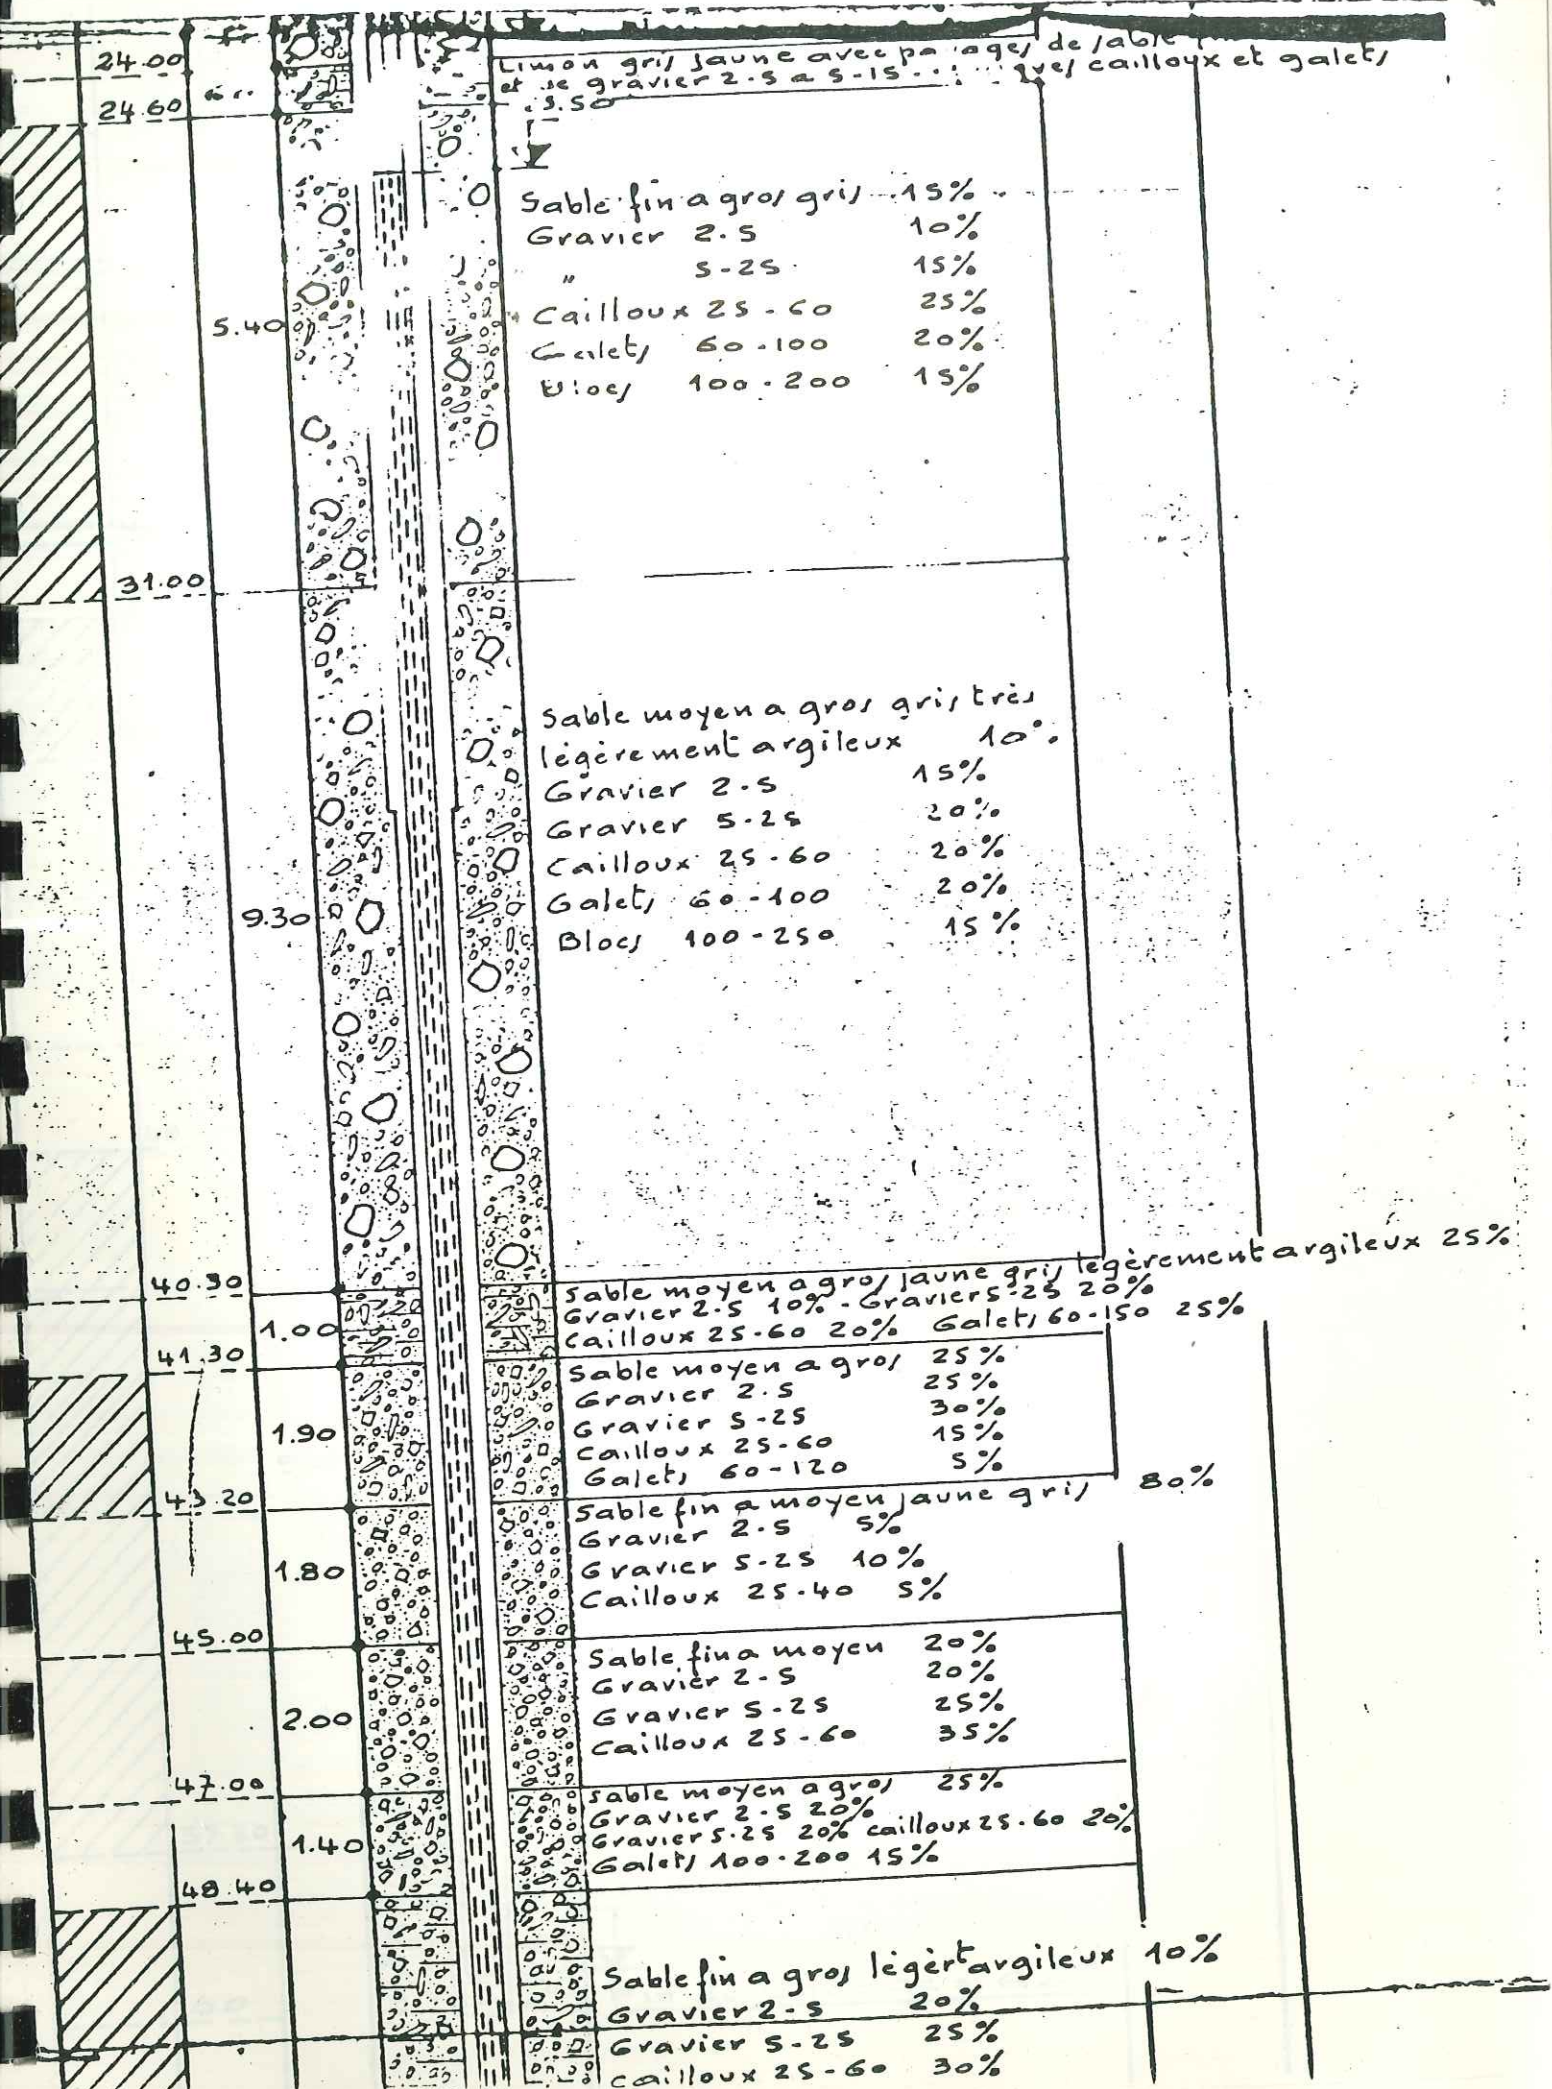 24.00
Limon gris jaune avec pa ages de sable
et de gravier 2.5 a 5-15 cailloux et galets
24.60
3.50
Sable fin a gros gris 15%
Gravier 2.5 10%
" 5-25 15%
5.40
Cailloux 25-60 25%
Galets 60-100 20%
Blocs 100-200 15%
31.00
Sable moyen a gros gris très
légèrement argileux 10%
Gravier 2.5 15%
Gravier 5-25 20%
Cailloux 25-60 20%
9.30
Galets 60-100 20%
Blocs 100-250 15%
40.30
Sable moyen a gros jaune gris légèrement argileux 25%
Gravier 2.5 10% - Gravier 5-25 20%
1.00
Cailloux 25-60 20% Galets 60-150 25%
41.30
Sable moyen a gros 25%
Gravier 2.5 25%
Gravier 5-25 30%
1.90
Cailloux 25-60 15%
Galets 60-120 5%
43.20
Sable fin a moyen jaune gris 80%
Gravier 2.5 5%
Gravier 5-25 10%
1.80
Cailloux 25-40 5%
45.00
Sable fin a moyen 20%
Gravier 2-5 20%
2.00
Gravier 5-25 25%
Cailloux 25-60 35%
47.00
Sable moyen a gros 25%
Gravier 2-5 20%
1.40
Gravier 5-25 20% cailloux 25-60 20%
Galets 100-200 15%
48.40
Sable fin a gros légèrt argileux 10%
Gravier 2-5 20%
Gravier 5-25 25%
cailloux 25-60 30%